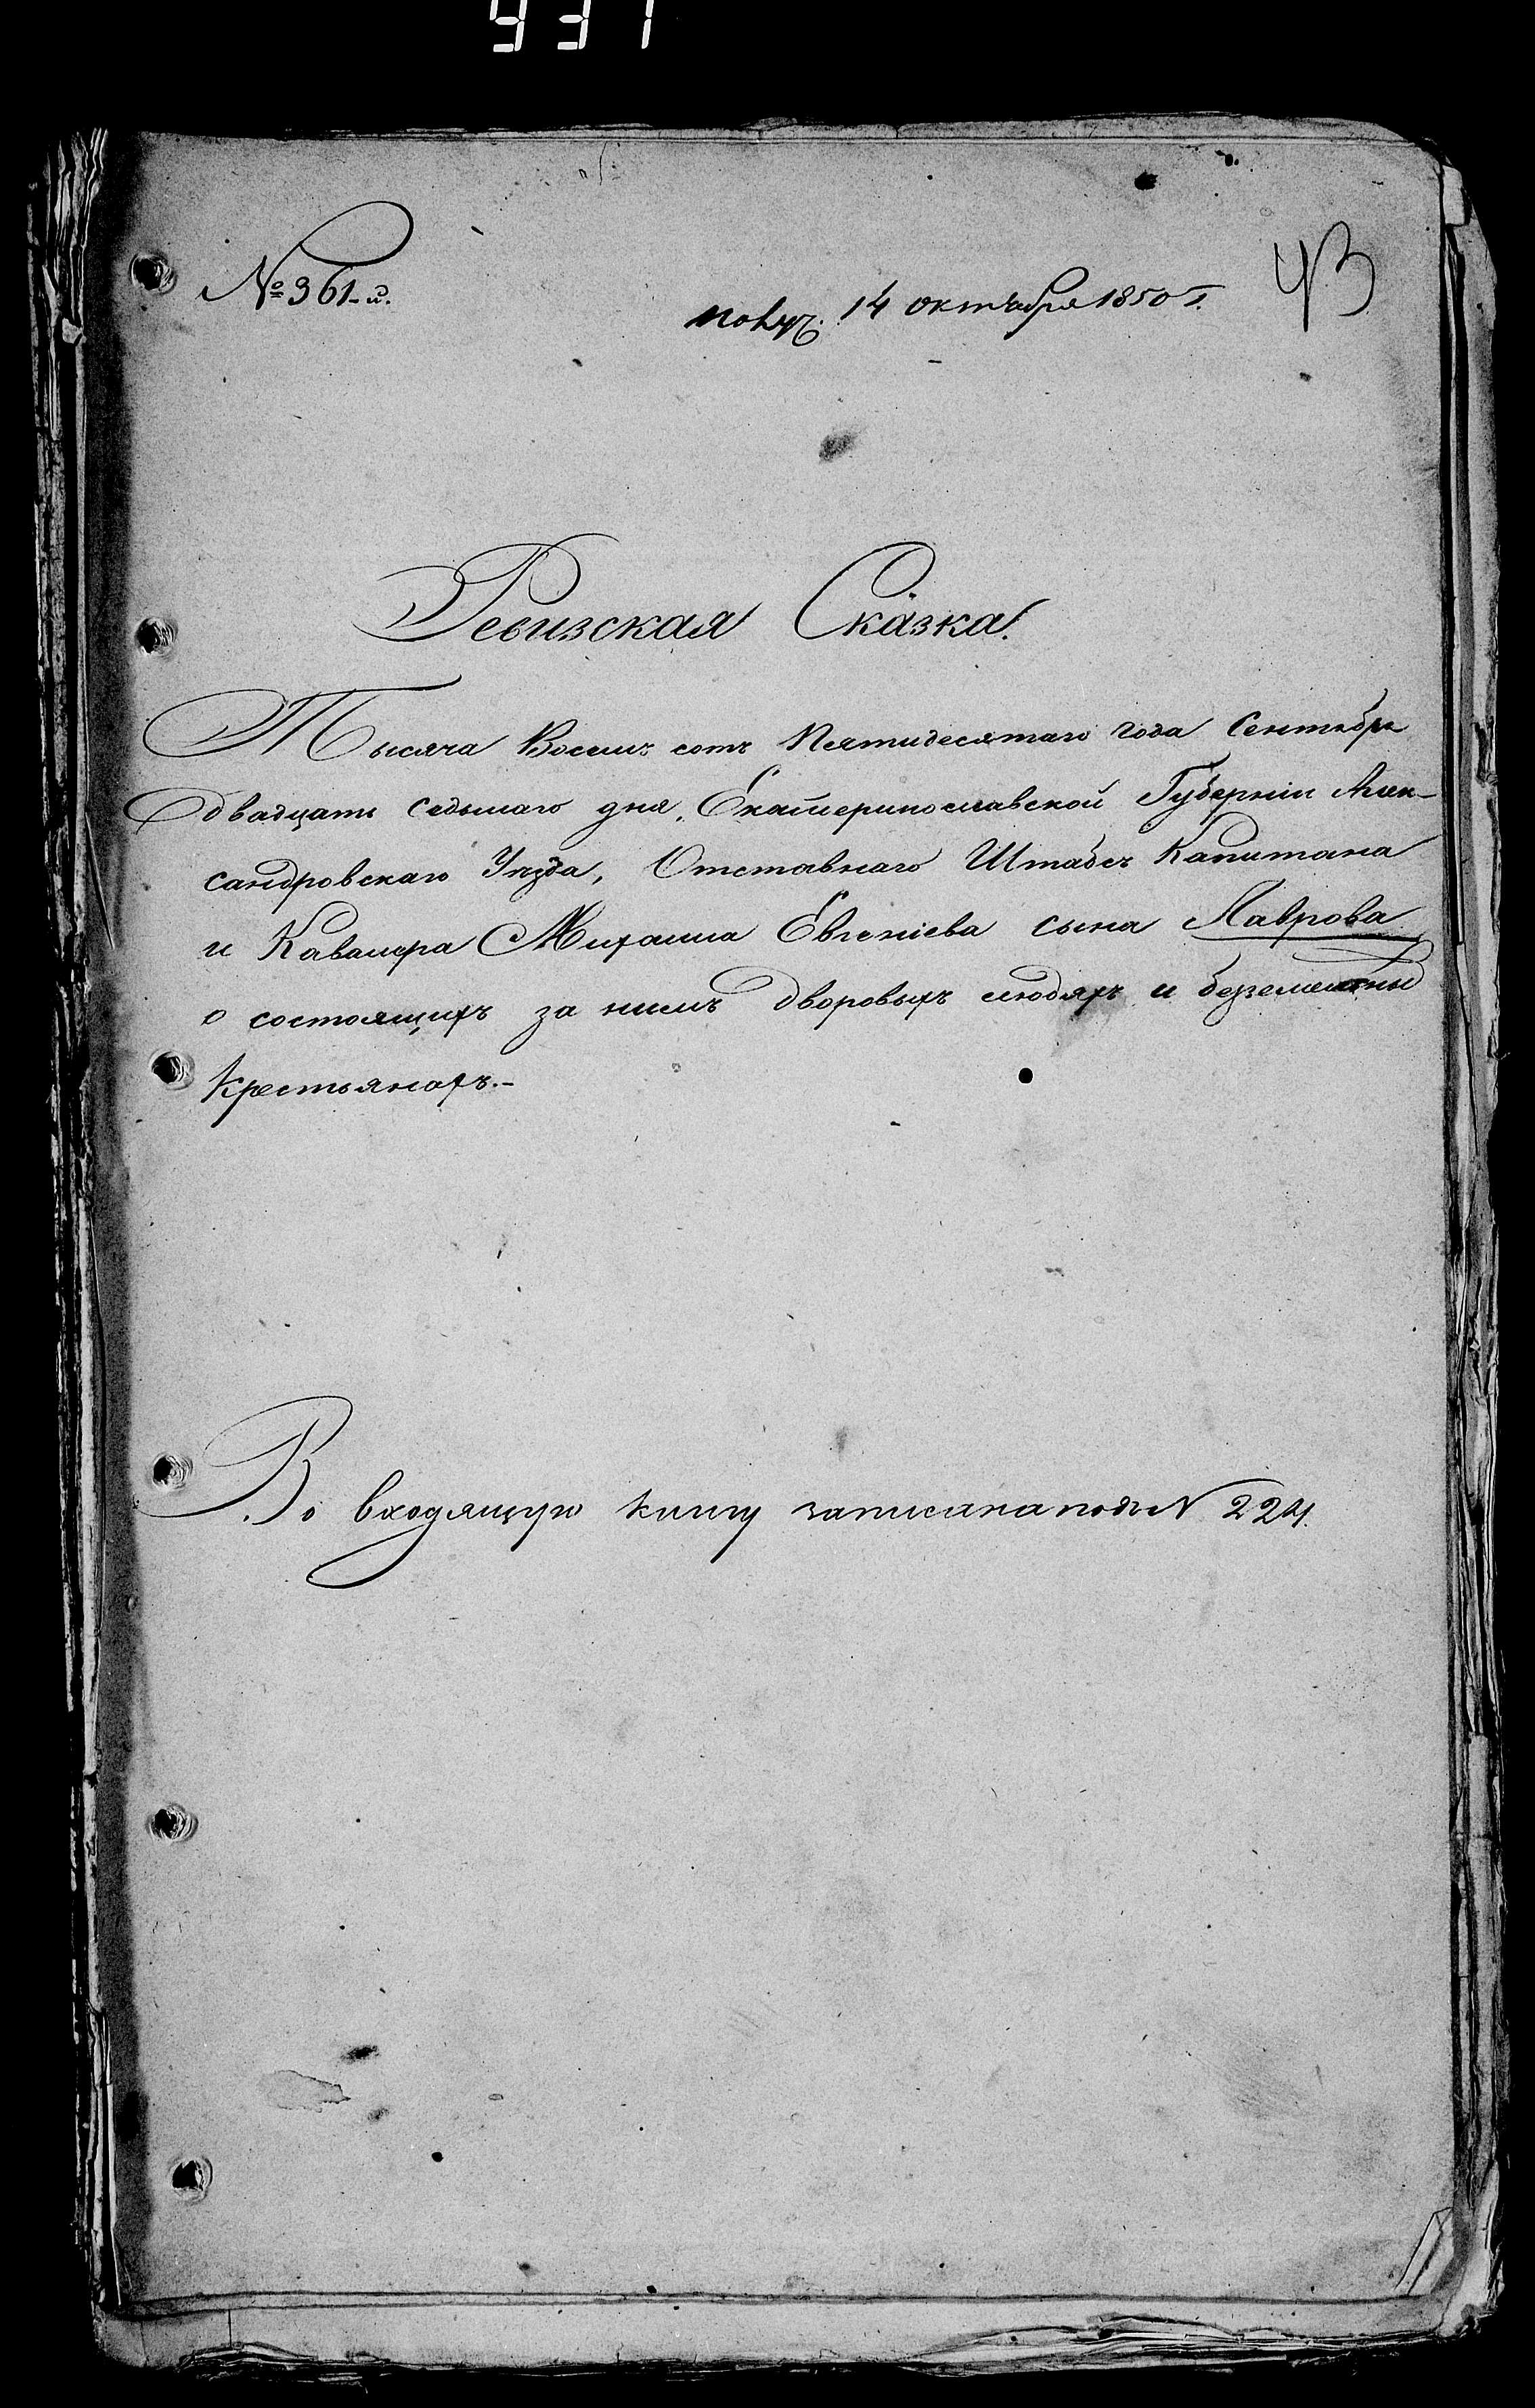 937
№ 361-й.
получ. 14 октября 1850 г.
43
Ревизская Сказка.
Тысяча Восемь сотъ Пятидесятаго года Сентября
двадцать седьмаго дня, Екатеринославской Губерніи Алек-
сандровскаго Уезда, Отставнаго Штабсъ Капитана
и Кавалера Михаила Евгеніева сына Лаврова
о состоящихъ за нимъ дворовыхъ людяхъ и безземельны
Крестьянахъ.-
Во входящую книгу записана подъ N 224.